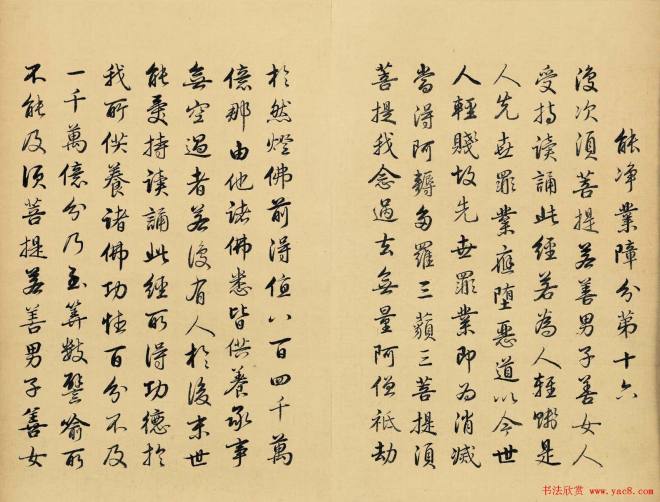 能净業障分第十六
復次須菩提若善男子善女人
受持讀誦此經若為人輕賤是
人先世罪業應墮惡道以今世
人輕賤故先世罪業即為消滅
當得阿耨多羅三藐三菩提須
菩提我念過去無量阿僧祇劫
於然燈佛前得值八百四千萬
億那由他諸佛悉皆供養承事
無空過者若復有人於後末世
能受持讀誦此經所得功德於
我所供養諸佛功德百分不及
一千萬億分乃至算數譬喻所
不能及須菩提若善男子善女
书法欣赏
www.yac8.com